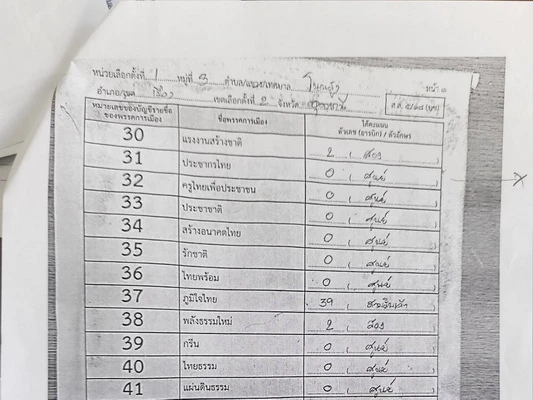 หน่วยเลือกตั้งที่ 1 หมู่ที่ 3 ตำบล/แขวง/เทศบาล หน้า ๓
อำเภอ/เขต เมือง เขตเลือกตั้งที่ 2 จังหวัด ส.ส. ๕/๑๘ (บช)
หมายเลขของบัญชีรายชื่อของพรรคการเมือง ชื่อพรรคการเมือง ได้คะแนน ตัวเลข (อารบิก) / ตัวอักษร
30 แรงงานสร้างชาติ 2 ( สอง )
31 ประชากรไทย 0 ( ศูนย์ )
32 ครูไทยเพื่อประชาชน 0 ( ศูนย์ )
33 ประชาชาติ 0 ( ศูนย์ )
34 สร้างอนาคตไทย 0 ( ศูนย์ )
35 รักชาติ 0 ( ศูนย์ )
36 ไทยพร้อม 0 ( ศูนย์ )
37 ภูมิใจไทย 39 ( สามสิบเก้า )
38 พลังธรรมใหม่ 2 ( สอง )
39 กรีน 0 ( ศูนย์ )
40 ไทยธรรม 0 ( ศูนย์ )
41 แผ่นดินธรรม 0 ( ศูนย์ )